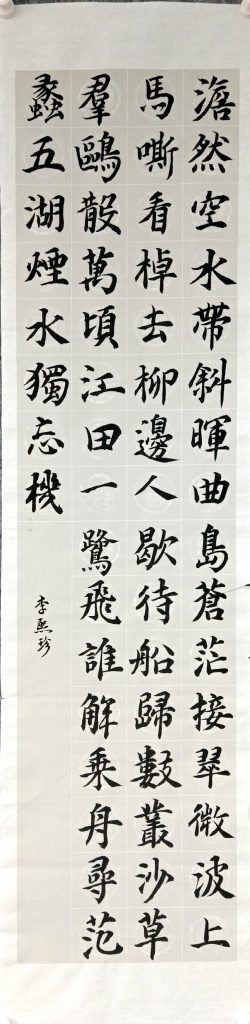 澹然空水帶斜暉曲島蒼茫接翠微波上
馬嘶看棹去柳邊人歇待船歸數叢沙草
羣鷗散萬頃江田一鷺飛誰解乗舟尋范
蠡五湖煙水獨忘機
李熙珍